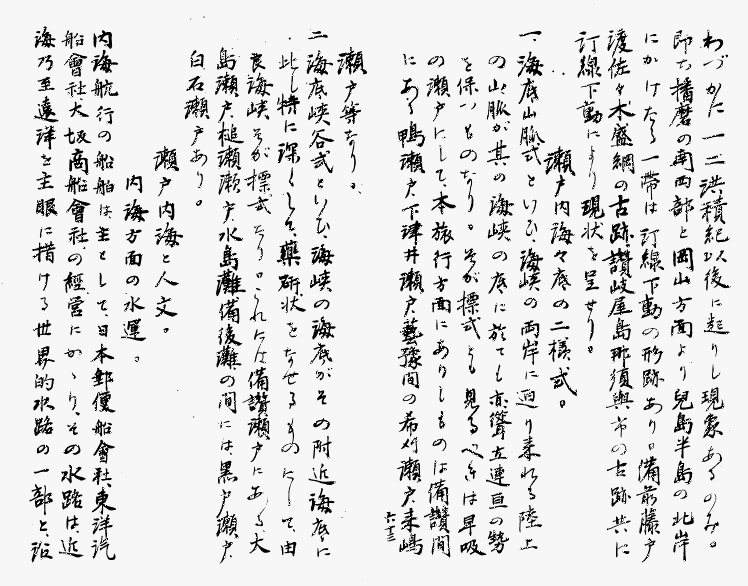 わづかに一二洪積紀以後に起りし現象あるのみ。
即ち播磨の南西部と岡山方面より兒島半島の北岸
にかけたる一帶は汀線下動の形跡あり。備前藤戸
渡佐々木盛綱の古跡、讃岐屋島那須與市の古跡共に
汀線下動により現状を呈せり。
瀬戸内海々底の二様式。
一、海底山脈式といひ、海峡の両岸に迫り来れる陸上
の山脈が其の海峡の底に於ても亦聳立連亘の勢
を保つものなり。そが標式とも見るべきは早吸
の瀬戸にして、本旅行方面にありしものは備讃間
にある鴨瀬戸、下津井瀬戸、藝豫間の希刈瀬戸、来嶋
瀬戸等なり。
二、海底峡谷式といひ、海峡の海底がその附近海底に
比し特に深くして、藥研状をなせるものにして、由
良海峡そが標式なり。これには備讃瀬戸にある大
島瀬戸、槌瀬瀬戸、水島灘備後灘の間には、黒戸瀬戸、
白石瀬戸あり。
瀬戸内海と人文。
内海方面の水運。
内海航行の船舶は主として、日本郵便船會社、東洋汽
船會社、大坂商船會社の經営にかゝり、その水路は、近
海乃至遠洋を主眼に措ける世界的水路の一部と、沿
六十三